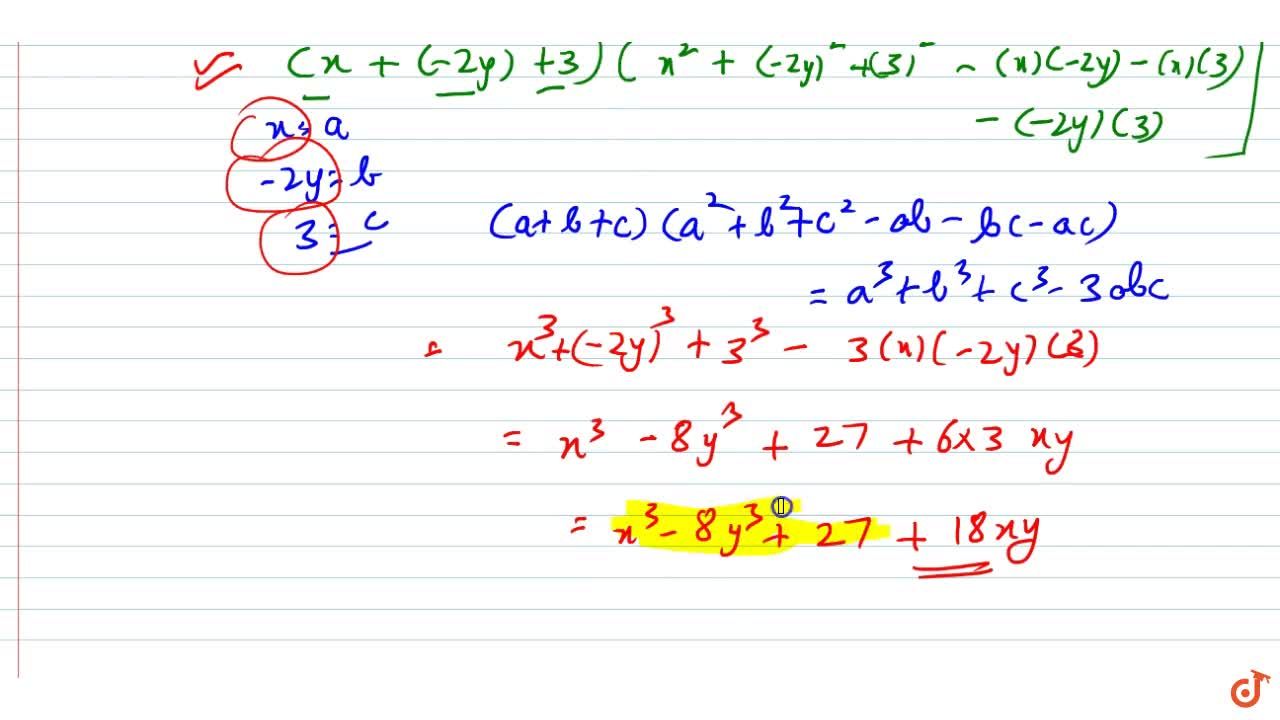 (x + (-2y) + 3) ( x² + (-2y)² + (3)² - (x)(-2y) - (x)(3)
- (-2y)(3) ]
x = a
-2y = b
3 = c
(a+b+c) (a² + b² + c² - ab - bc - ac)
= a³ + b³ + c³ - 3abc
= x³ + (-2y)³ + 3³ - 3(x)(-2y)(3)
= x³ - 8y³ + 27 + 6×3 xy
= x³ - 8y³ + 27 + 18xy